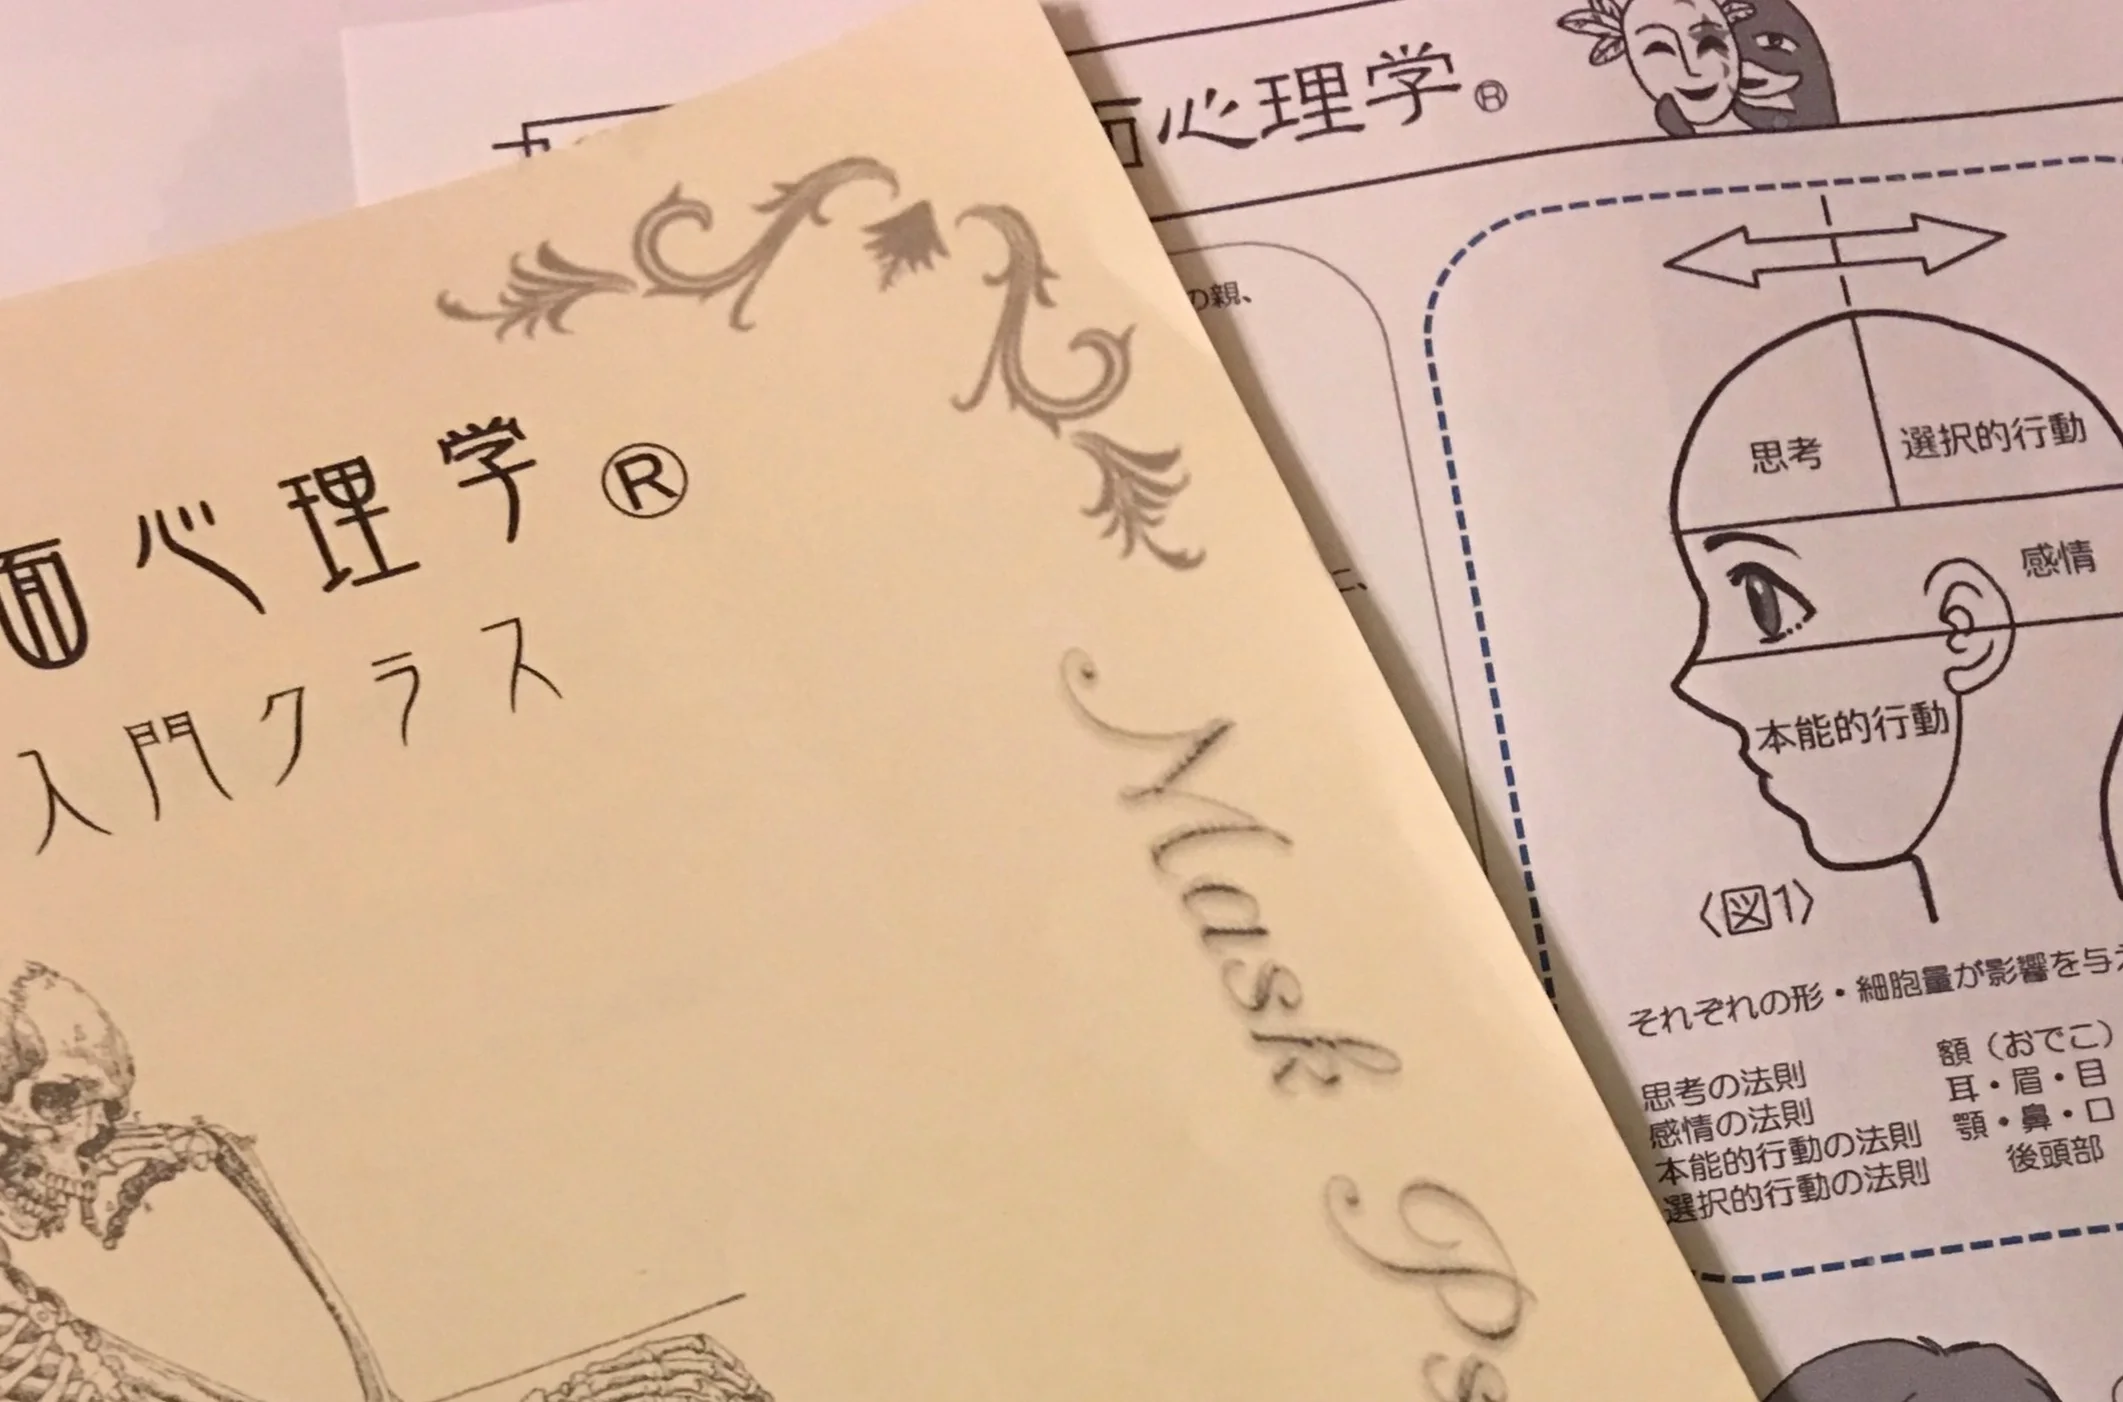 面心理学®
入門クラス
Mask Ps
面心理学®
の親、
思考
選択的行動
感情
本能的行動
〈図1〉
それぞれの形・細胞量が影響を与え
思考の法則 額（おでこ）
感情の法則 耳・眉・目
本能的行動の法則 顎・鼻・口
選択的行動の法則 後頭部